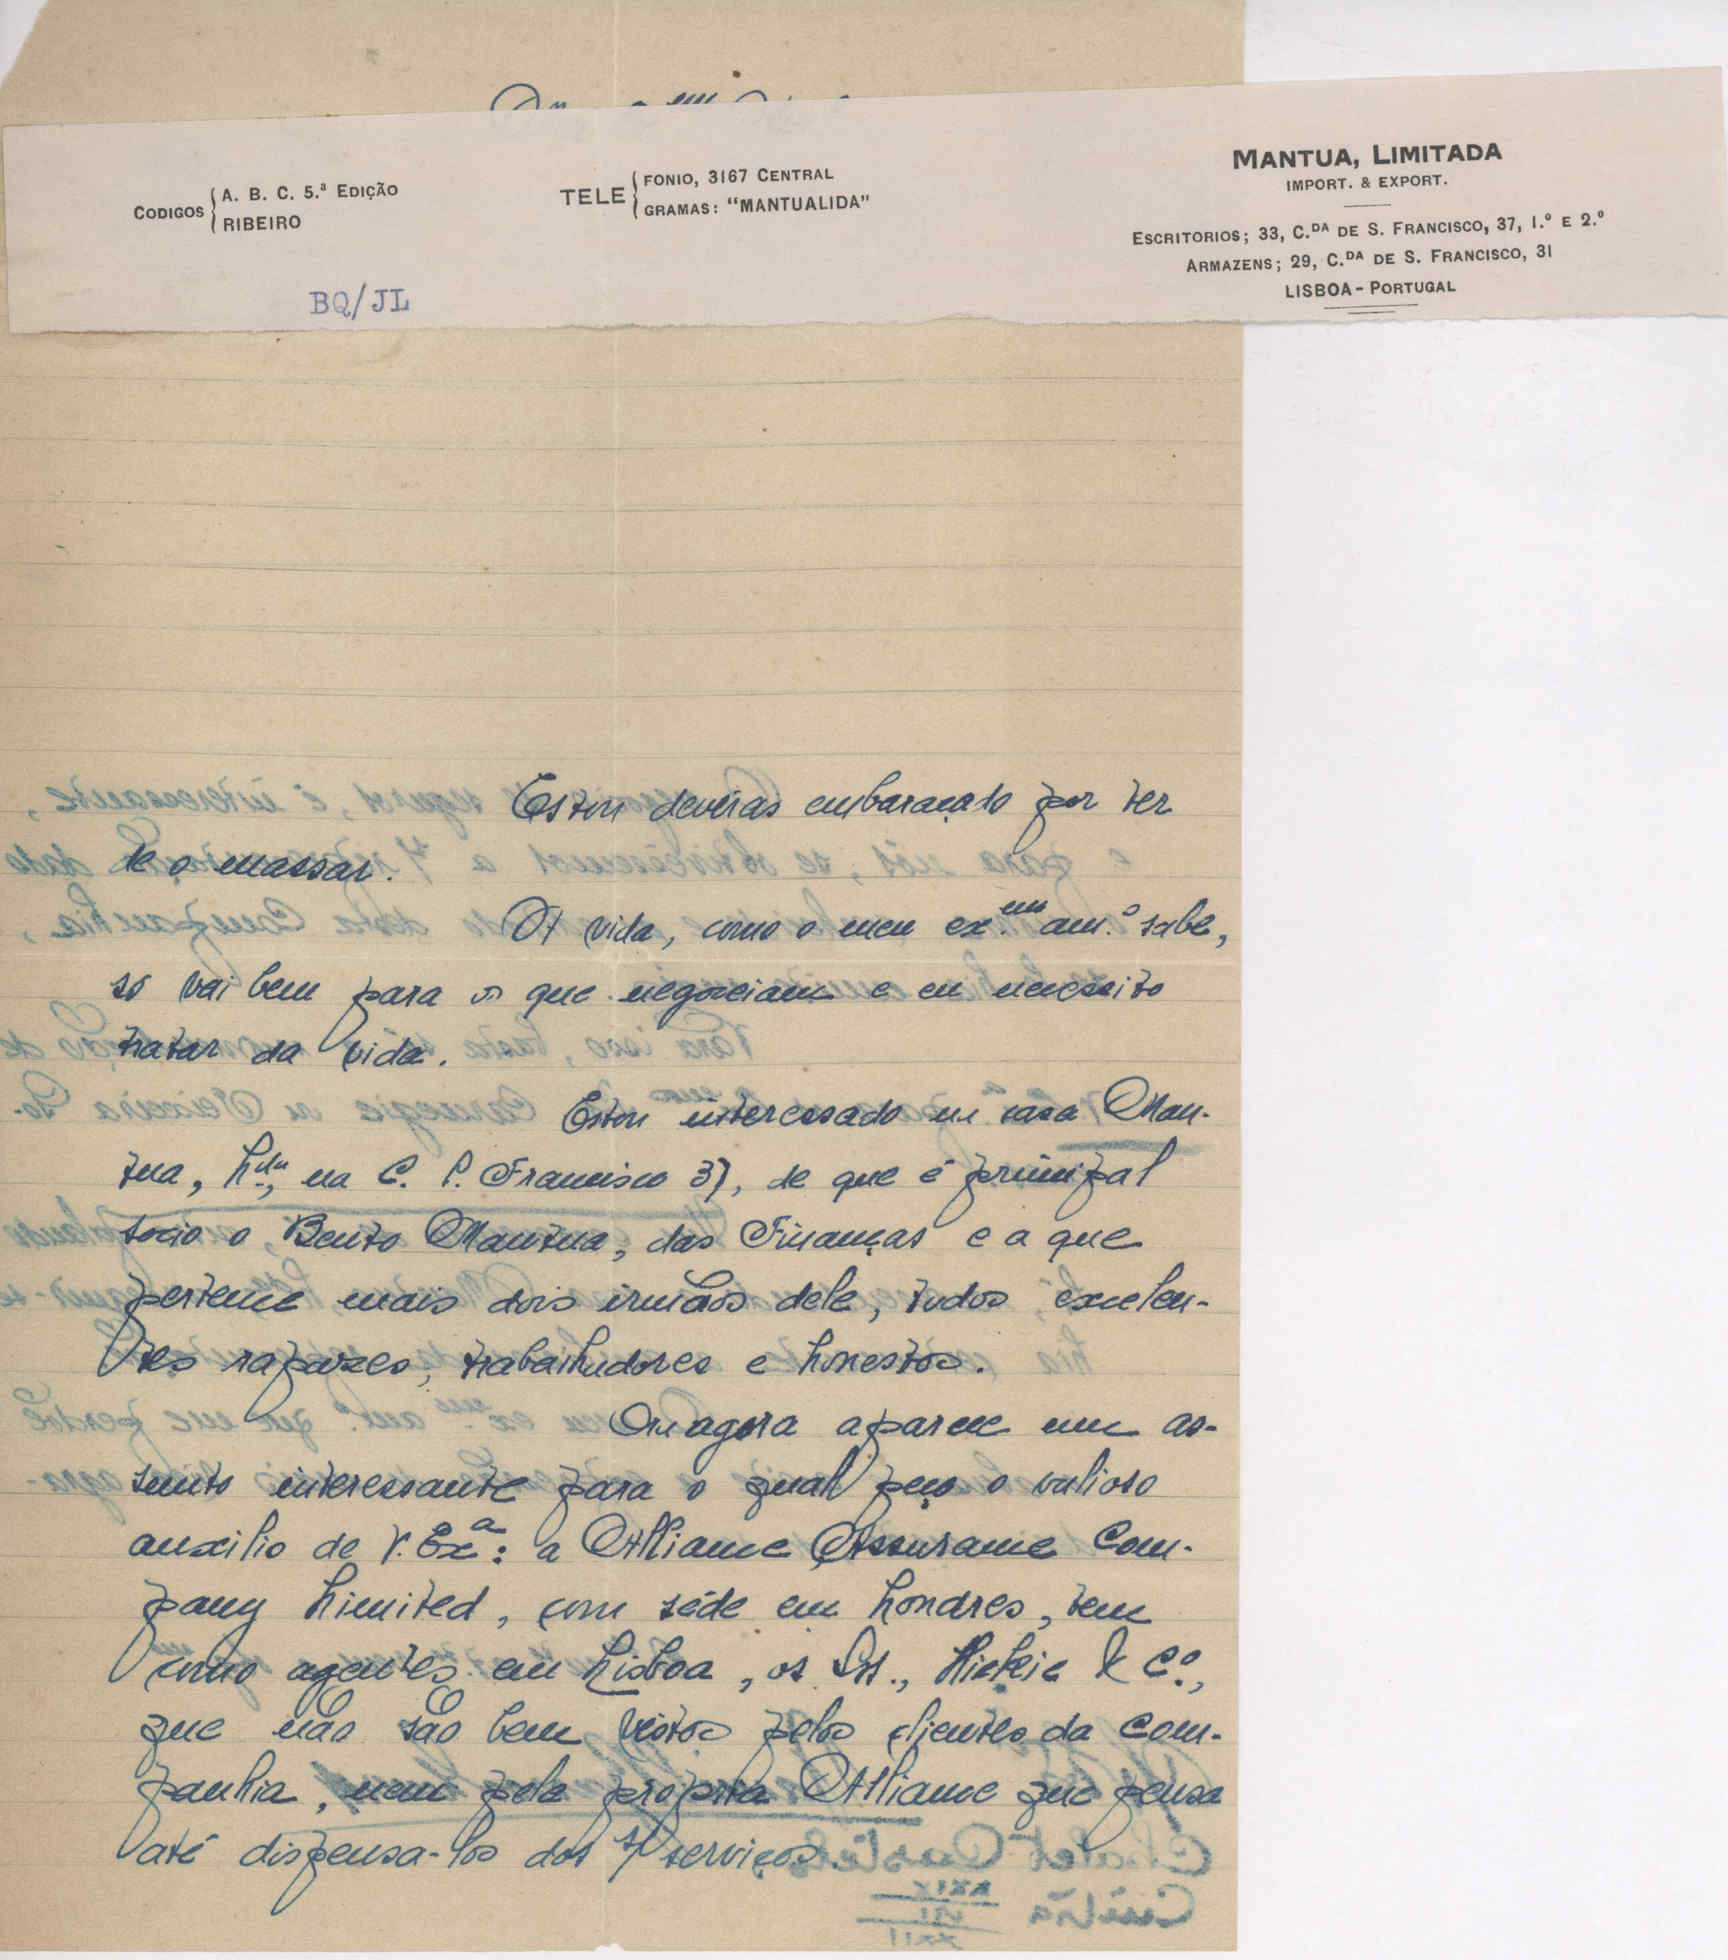 MANTUA, LIMITADA
IMPORT. & EXPORT.
ESCRITORIOS; 33, C.DA DE S. FRANCISCO, 37, 1.º E 2.º
ARMAZENS; 29, C.DA DE S. FRANCISCO, 31
LISBOA - PORTUGAL
CODIGOS { A. B. C. 5.ª EDIÇÃO
RIBEIRO
TELE { FONIO, 3167 CENTRAL
GRAMAS: "MANTUALIDA"
BQ/JL
Estou deveras embaraçado por ter
de o massar.
A vida, como o meu ex.mo am.º sabe,
só vai bem para os que negoceiam e eu necessito
tratar da vida.
Estou interessado na casa Man-
tua, L.da, na C. S. Francisco 37, de que é principal
socio o Bento Mantua, das Finanças e a que
pertence mais dois irmãos dele, todos excelen-
tes rapazes, trabalhadores e honestos.
agora aparece um as-
sunto interessante para o qual peço o valioso
auxilio de V. Ex.ª: a Alliance Assurance Com-
pany Limited, com séde em Londres, tem
como agentes em Lisboa, os Srs., Hickie & C.º,
que não são bem vistos pelos clientes da Com-
panhia, nem pela propria Alliance que pensa
até dispensa-los dos s/ serviços.